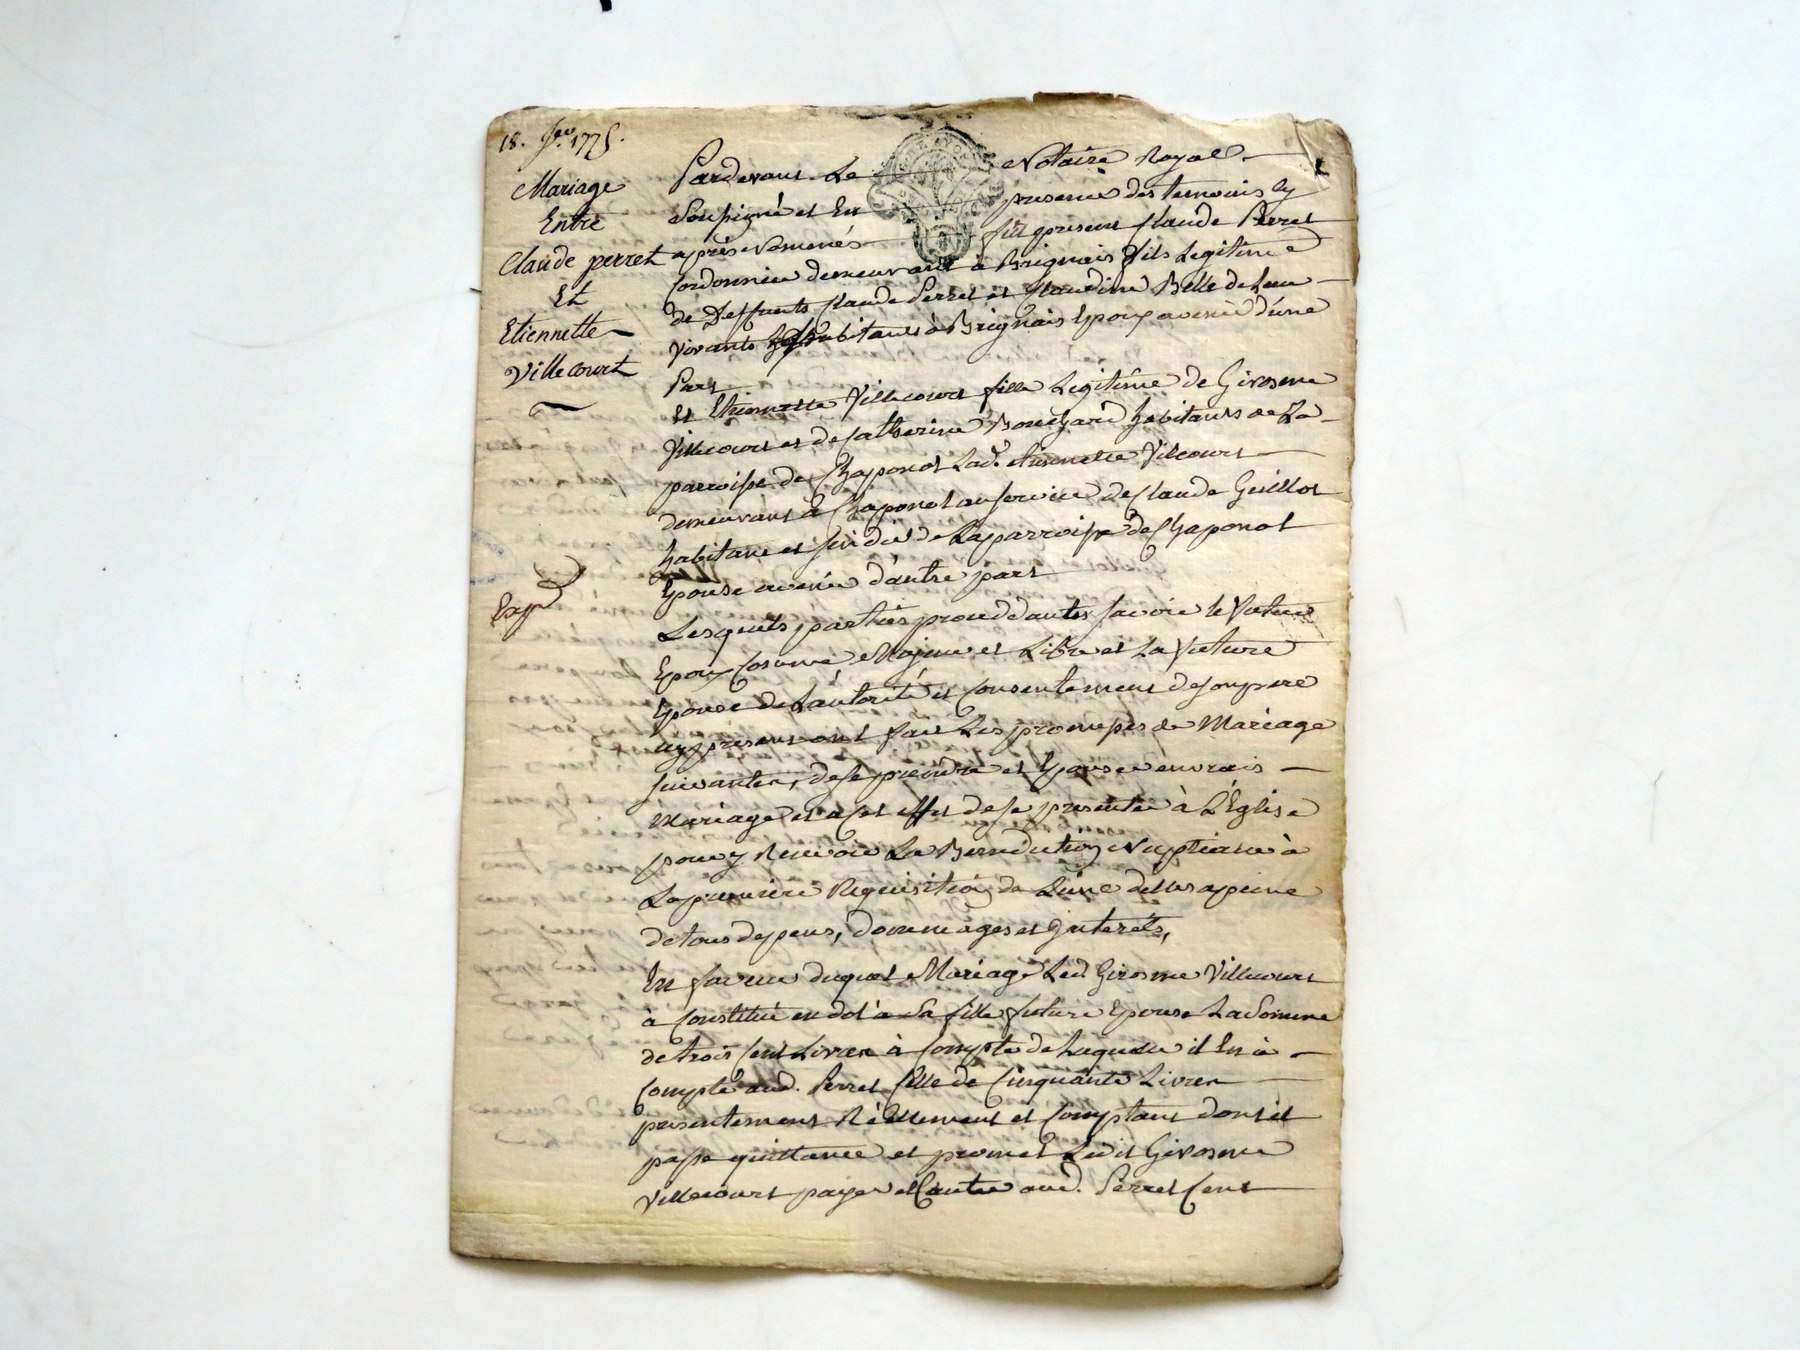 18. Jer. 1775.
Mariage
Entre
Claude perret
Et
Etiennette
Villecourt
Exp
Pardevant Le Notaire Royal
Soussigné et En presence des temoins cy
après nommés fut present Claude Perret
Cordonnier demeurant à Brignais fils Legitime
de Deffunts Claude Perret et Claudine Belle de Leur
vivants habitants à Brignais Epoux avenir d'une
Part
Et Etiennette Villecourt fille Legitime de Girosme
Villecourt et de Catherine Bouchard habitants de La
parroisse de Chaponot Lad. Etiennette Vilcourt
demeurant à Chaponot au service de Claude Guillot
habitant et sindic de La parroisse de Chaponot
Epouse avenir d'autre part
Lesquels parties proceddantes savoir le Future
Epoux Comme Majeur et Libre et La Future
Epouse de L'autorité et Consentement de son pere
icy present ont fait Les promesses de Mariage
suivantes, de se prendre et Epouser en vrais
Mariage et a cet effet de se presenter à L'Eglise
pour y Recevoir La Benediction Nuptialle à
La premiere Requisition de L'une d'elles a peine
de tous depens, dommages et Interêts,
En faveur duquel Mariage Led. Girosme Villecourt
à Constitué en dot à Sa fille future Epouse La Somme
de trois Cent Livres à Compte de Laquelle il En à
Compté aud. Perret Celle de Cinquante Livres
presentement Réellement et Comptant dont il
passe quittance et promet Ledit Girosme
Villecourt payer aud. Perret Cent